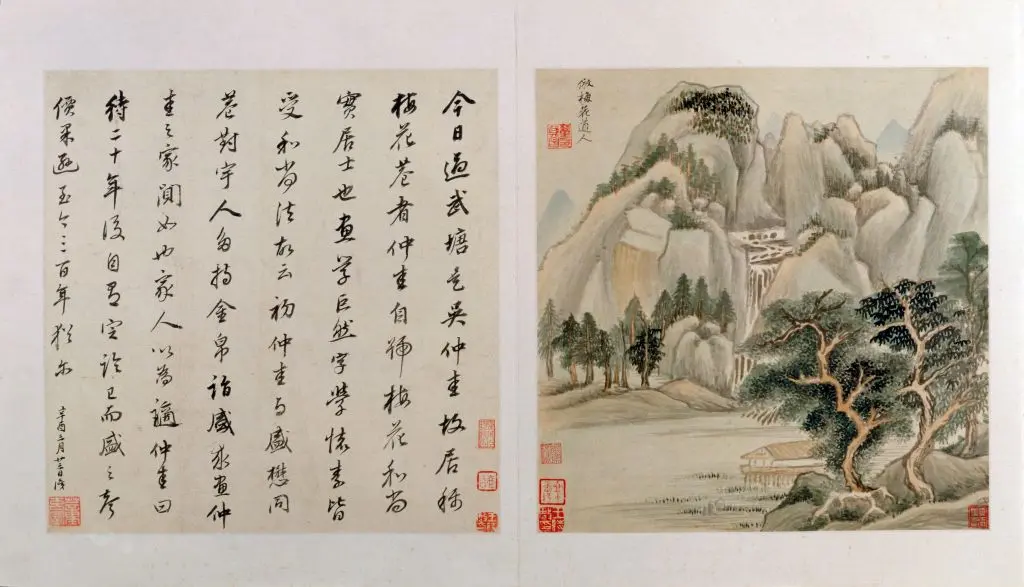 倣梅花道人
今日過武塘是吳仲圭故居稱
梅花菴者仲圭自號梅花和尚
實居士也畫學巨然字學懷素皆
受和尚法故云初仲圭与盛懋同
對宇人多持金帛詣盛求畫仲
圭之家闃如也家人以為謫仲圭曰
待二十年後自有定論已而盛之聲
價果遜至今三百年猶尔
辛酉二月廿三日識